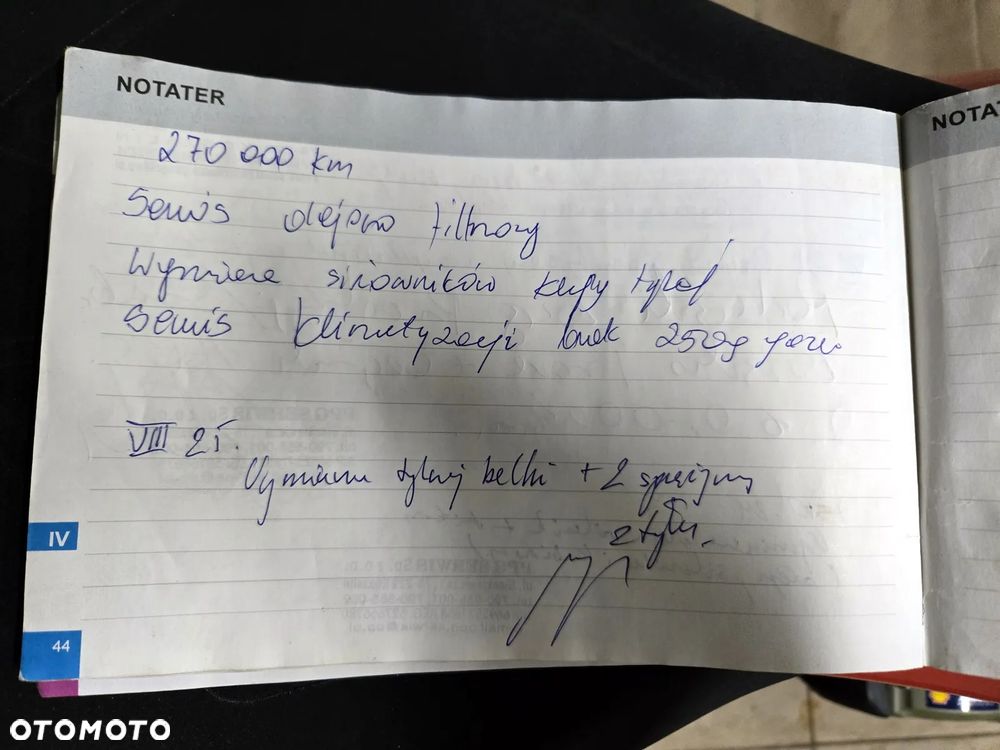 NOTATER
270 000 km
Serwis olejowo filtrowy
Wymiana siłowników klapy tylnej
Serwis klimatyzacji brak 250g
VIII 21.
Wymiana tylnej belki + 2 sprężyny
z tyłu.
IV
44
NOTA
OTOMOTO